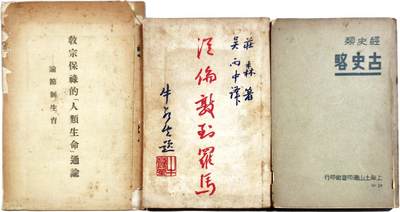 教宗保祿的「人類生命」通諭
論節制生育
莊森著
吳中譯
從倫敦到羅馬
牛若望題
經史類
古史略
上海土山灣印書館印行